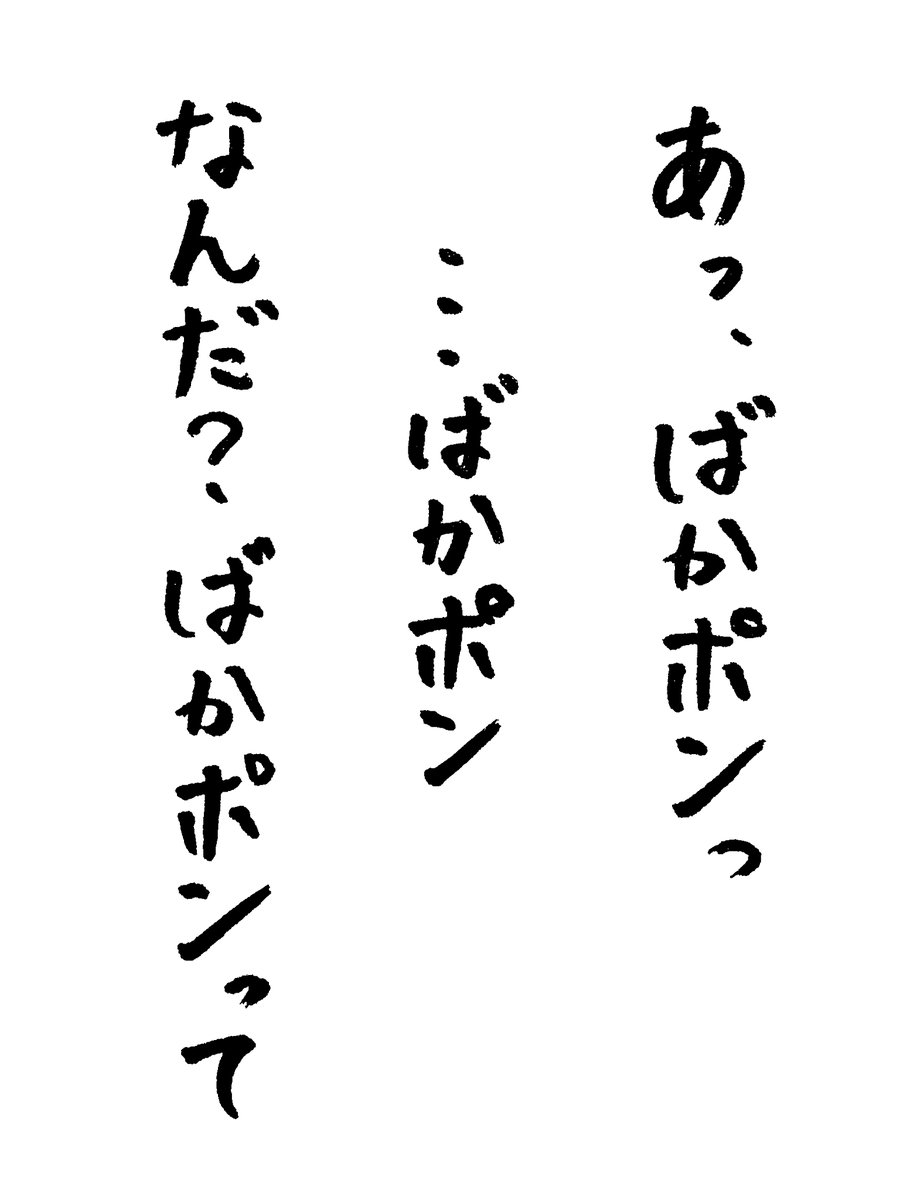 あっ、ばかポンっ
…ばかポン
なんだ?、ばかポンって